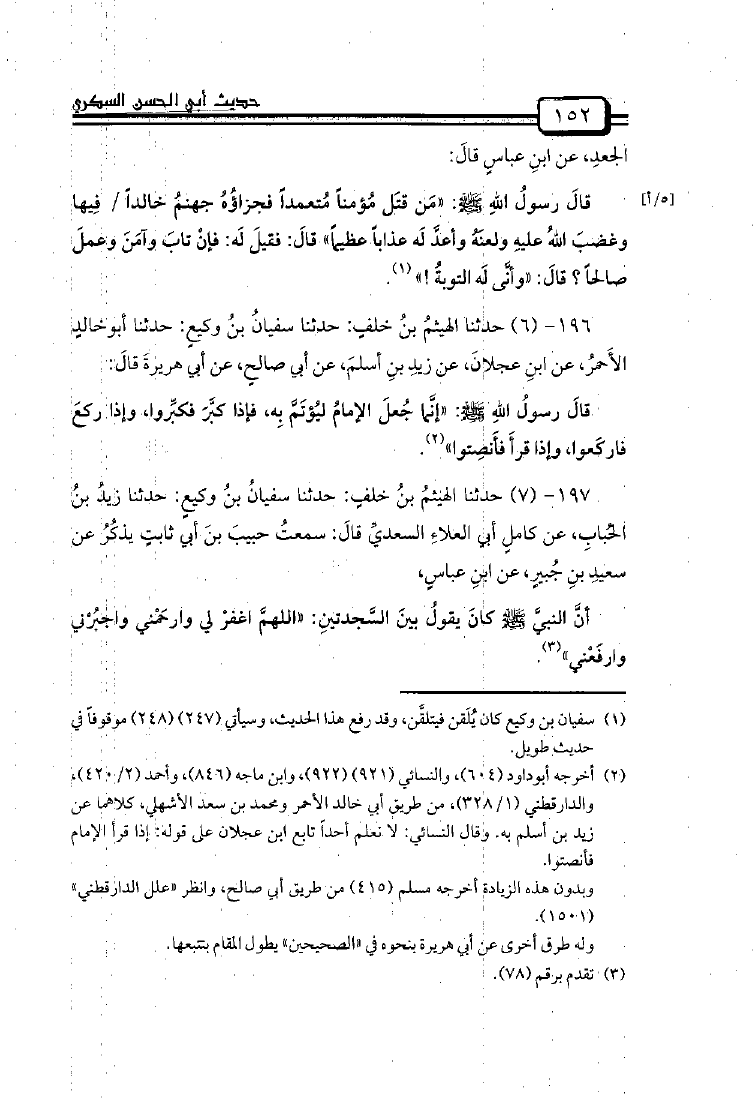 حديث أبي الحسن السكري
١٥٢
الجعدِ، عن ابنِ عباسٍ قالَ:
[٥/أ] قالَ رسولُ اللهِ ﷺ: «مَن قتَل مُؤمناً مُتعمداً فجزاؤُهُ جهنمُ خالداً / فِيها
وغضبَ اللهُ عليهِ ولعنَهُ وأعدَّ له عذاباً عظيماً» قالَ: فقيلَ له: فإنْ تابَ وآمَنَ وعملَ
صالحاً؟ قالَ: «وأنَّى له التوبةُ!»(١).
١٩٦- (٦) حدثنا الهيثمُ بنُ خلفٍ: حدثنا سفيانُ بنُ وكيعٍ: حدثنا أبوخالدٍ
الأحمرُ، عن ابنِ عجلانَ، عن زيدِ بنِ أسلمَ، عن أبي صالحٍ، عن أبي هريرةَ قالَ:
قالَ رسولُ اللهِ ﷺ: «إنَّما جُعلَ الإمامُ ليُؤتَمَّ بِه، فإذا كبَّرَ فكبِّروا، وإذا ركعَ
فاركَعوا، وإذا قرأَ فأَنصِتوا»(٢).
١٩٧- (٧) حدثنا الهيثمُ بنُ خلفٍ: حدثنا سفيانُ بنُ وكيعٍ: حدثنا زيدُ بنُ
الحُبابِ، عن كاملٍ أبي العلاءِ السعديِّ قالَ: سمعتُ حبيبَ بنَ أبي ثابتٍ يذكُرُ عن
سعيدِ بنِ جُبيرٍ، عن ابنِ عباسٍ،
أنَّ النبيَّ ﷺ كانَ يقولُ بينَ السَّجدتينِ: «اللهمَّ اغفرْ لي وارحَمْني واجبُرْني
وارفَعْني»(٣).
(١) سفيان بن وكيع كان يُلَقن فيتلقَّن، وقد رفع هذا الحديث، وسيأتي (٢٤٧) (٢٤٨) موقوفاً في
حديث طويل.
(٢) أخرجه أبوداود (٦٠٤)، والنسائي (٩٢١) (٩٢٢)، وابن ماجه (٨٤٦)، وأحمد (٢/ ٤٢٠)،
والدارقطني (١/ ٣٢٨)، من طريق أبي خالد الأحمر ومحمد بن سعد الأشهلي، كلاهما عن
زيد بن أسلم به. وقال النسائي: لا نعلم أحداً تابع ابن عجلان على قوله: إذا قرأ الإمام
فأنصتوا.
وبدون هذه الزيادة أخرجه مسلم (٤١٥) من طريق أبي صالح، وانظر «علل الدارقطني»
(١٥٠١).
وله طرق أخرى عن أبي هريرة بنحوه في «الصحيحين» يطول المقام بتتبعها.
(٣) تقدم برقم (٧٨).